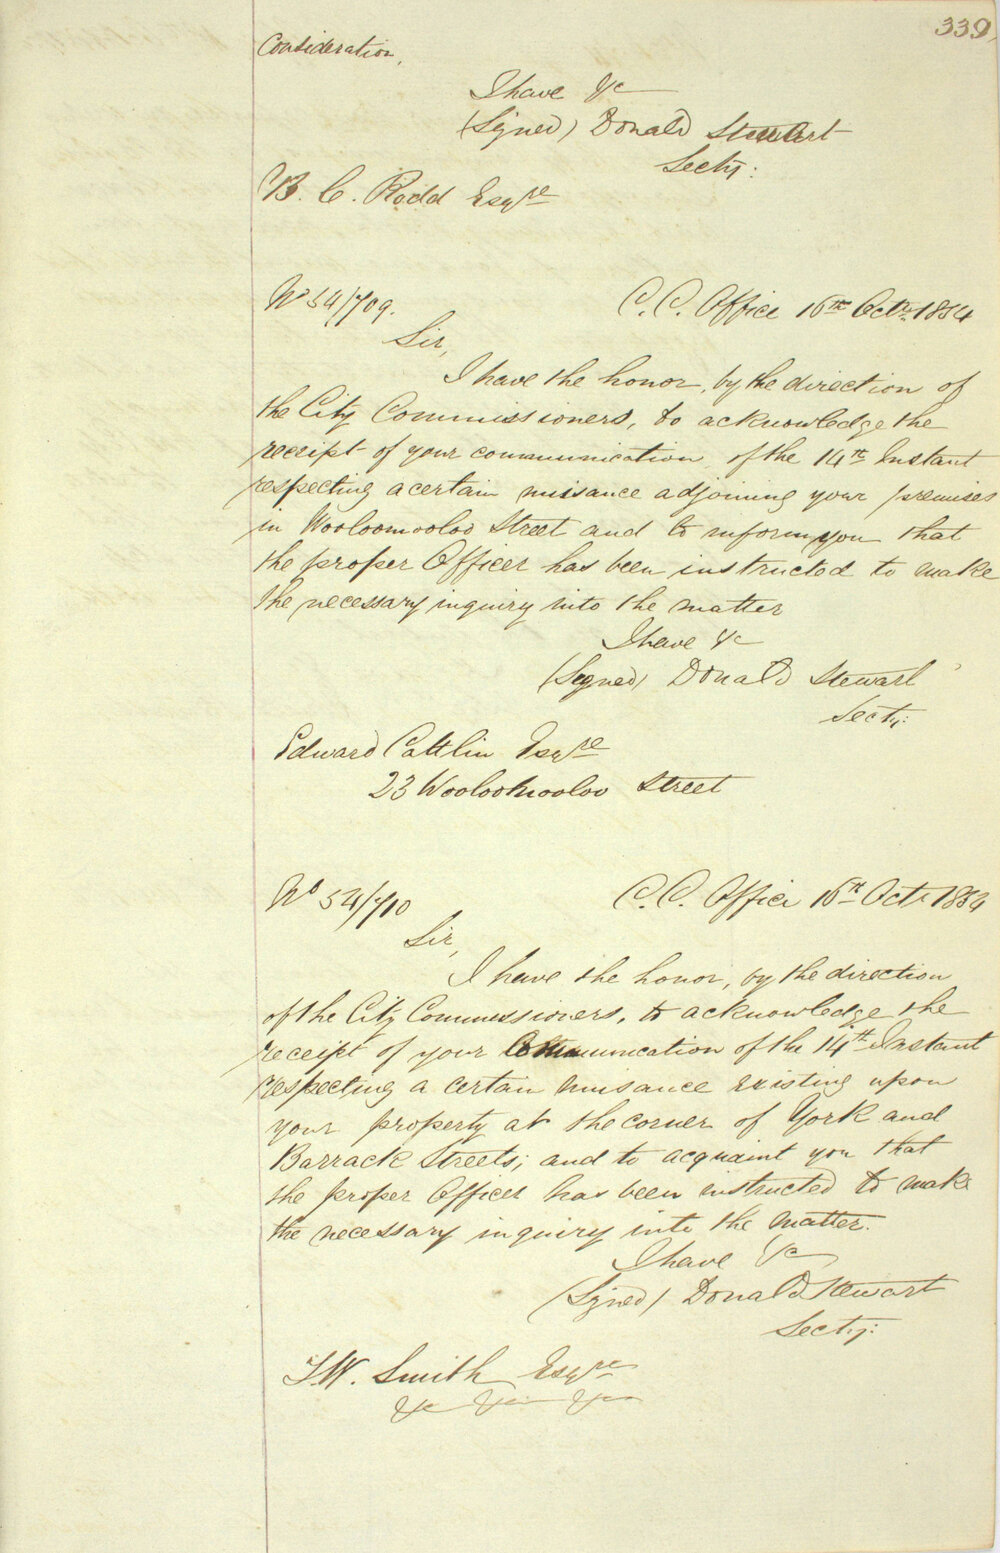 339
Consideration,
I have &c
(Signed) Donald Stewart
Secty:
B. C. Rodd Esqre
No 54/709.
C. C. Office 16th Octr. 1854
Sir,
I have the honor, by the direction of
the City Commissioners, to acknowledge the
receipt of your communication of the 14th Instant
respecting a certain nuisance adjoining your premises
in Wooloomooloo Street and to inform you that
the proper Officer has been instructed to make
the necessary inquiry into the matter
I have &c
(Signed) Donald Stewart
Secty:
Edward Cattlin Esqre
23 Wooloomooloo Street
No 54/710
C. C. Office 16th Octr 1854
Sir,
I have the honor, by the direction
of the City Commissioners, to acknowledge the
receipt of your Communication of the 14th Instant
respecting a certain nuisance existing upon
your property at the corner of York and
Barrack Streets; and to acquaint you that
the proper Officer has been instructed to make
the necessary inquiry into the matter.
I have &c
(Signed) Donald Stewart
Secty:
T. W. Smith Esqre
&c &c &c